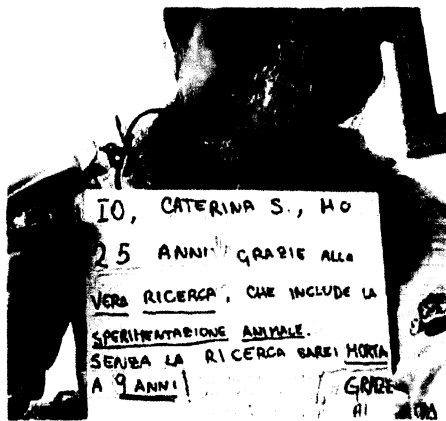 IO, CATERINA S., HO
25 ANNI GRAZIE ALLA
VERA RICERCA, CHE INCLUDE LA
SPERIMENTAZIONE ANIMALE.
SENZA LA RICERCA SAREI MORTA
A 9 ANNI!
GRAZIE
AI